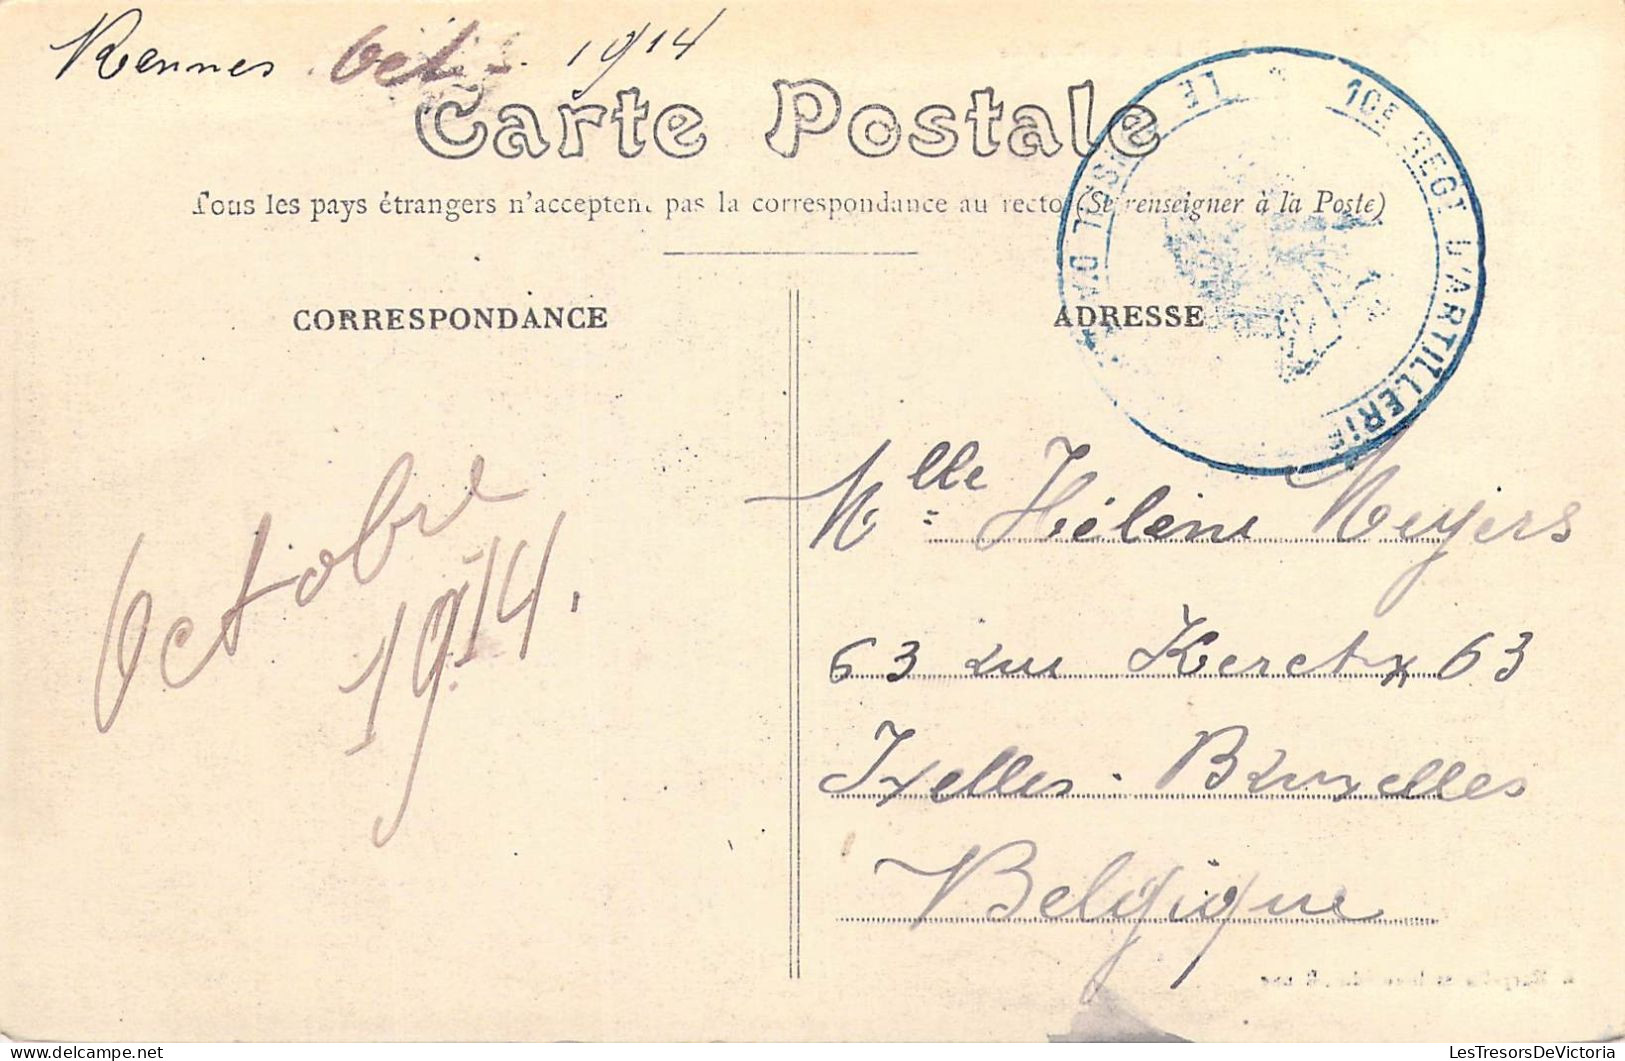 Rennes Oct. 1914
Carte Postale
Tous les pays étrangers n'acceptent pas la correspondance au recto (Se renseigner à la Poste)
CORRESPONDANCE
ADRESSE
10E REGT D'ARTILLERIE
LE
Octobre
1914.
Mlle Hélène Meyers
63 rue Keretx 63
Ixelles. Bruxelles
Belgique
LesTresorsDeVictoria